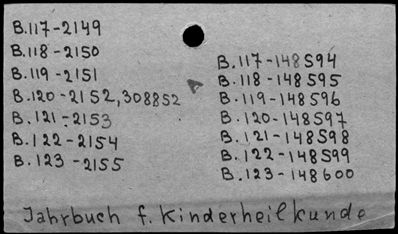 B.117-2149
B.118-2150
B.119-2151
B.120-2152,308852
B.121-2153
B.122-2154
B.123-2155
B.117-148594
B.118-148595
B.119-148596
B.120-148597
B.121-148598
B.122-148599
B.123-148600
Jahrbuch f. Kinderheilkunde